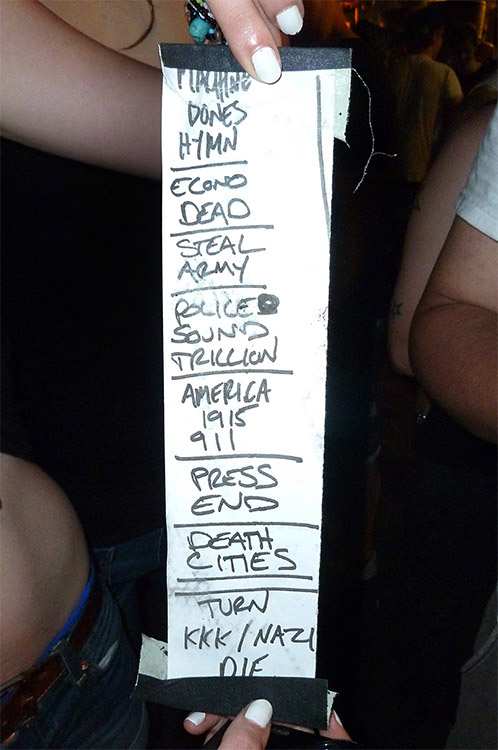 MACHINE
DONES
HYMN
ECONO
DEAD
STEAL
ARMY
POLICE
SOUND
TRILLION
AMERICA
1915
911
PRESS
END
DEATH
CITIES
TURN
KKK / NAZI
DIE